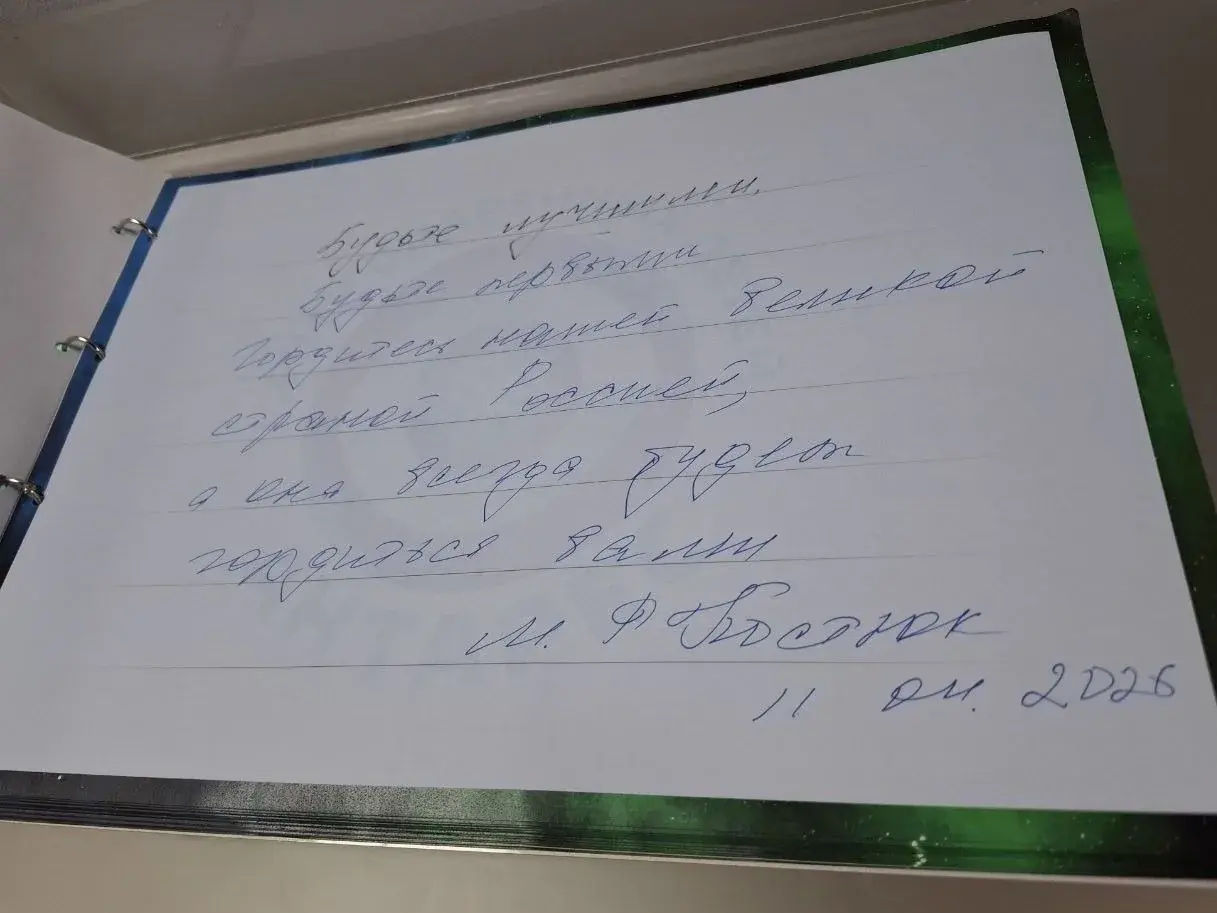 Будьте лучшими.
Будьте первыми
Гордитесь нашей великой
страной Россией,
а она всегда будет
гордиться вами
М. Р Костюк
11 04. 2026